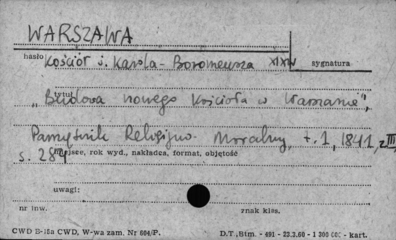 WARSZAWA
hasło Kościół ś. Karola-Boromeusza XIXw sygnatura
tytuł
„Budowa nowego Kościoła w Warszawie",
Pamiętnik Religijno-Moralny, t. 1, 1841, z III
s. 284 miejsce, rok wyd., nakładca, format, objętość
uwagi:
nr inw. znak klas.
CWD B-18a CWD, W-wa zam. Nr 604/P. D.T. „Bim." - 491 - 23.3.60 - 1 300 000 - kart.